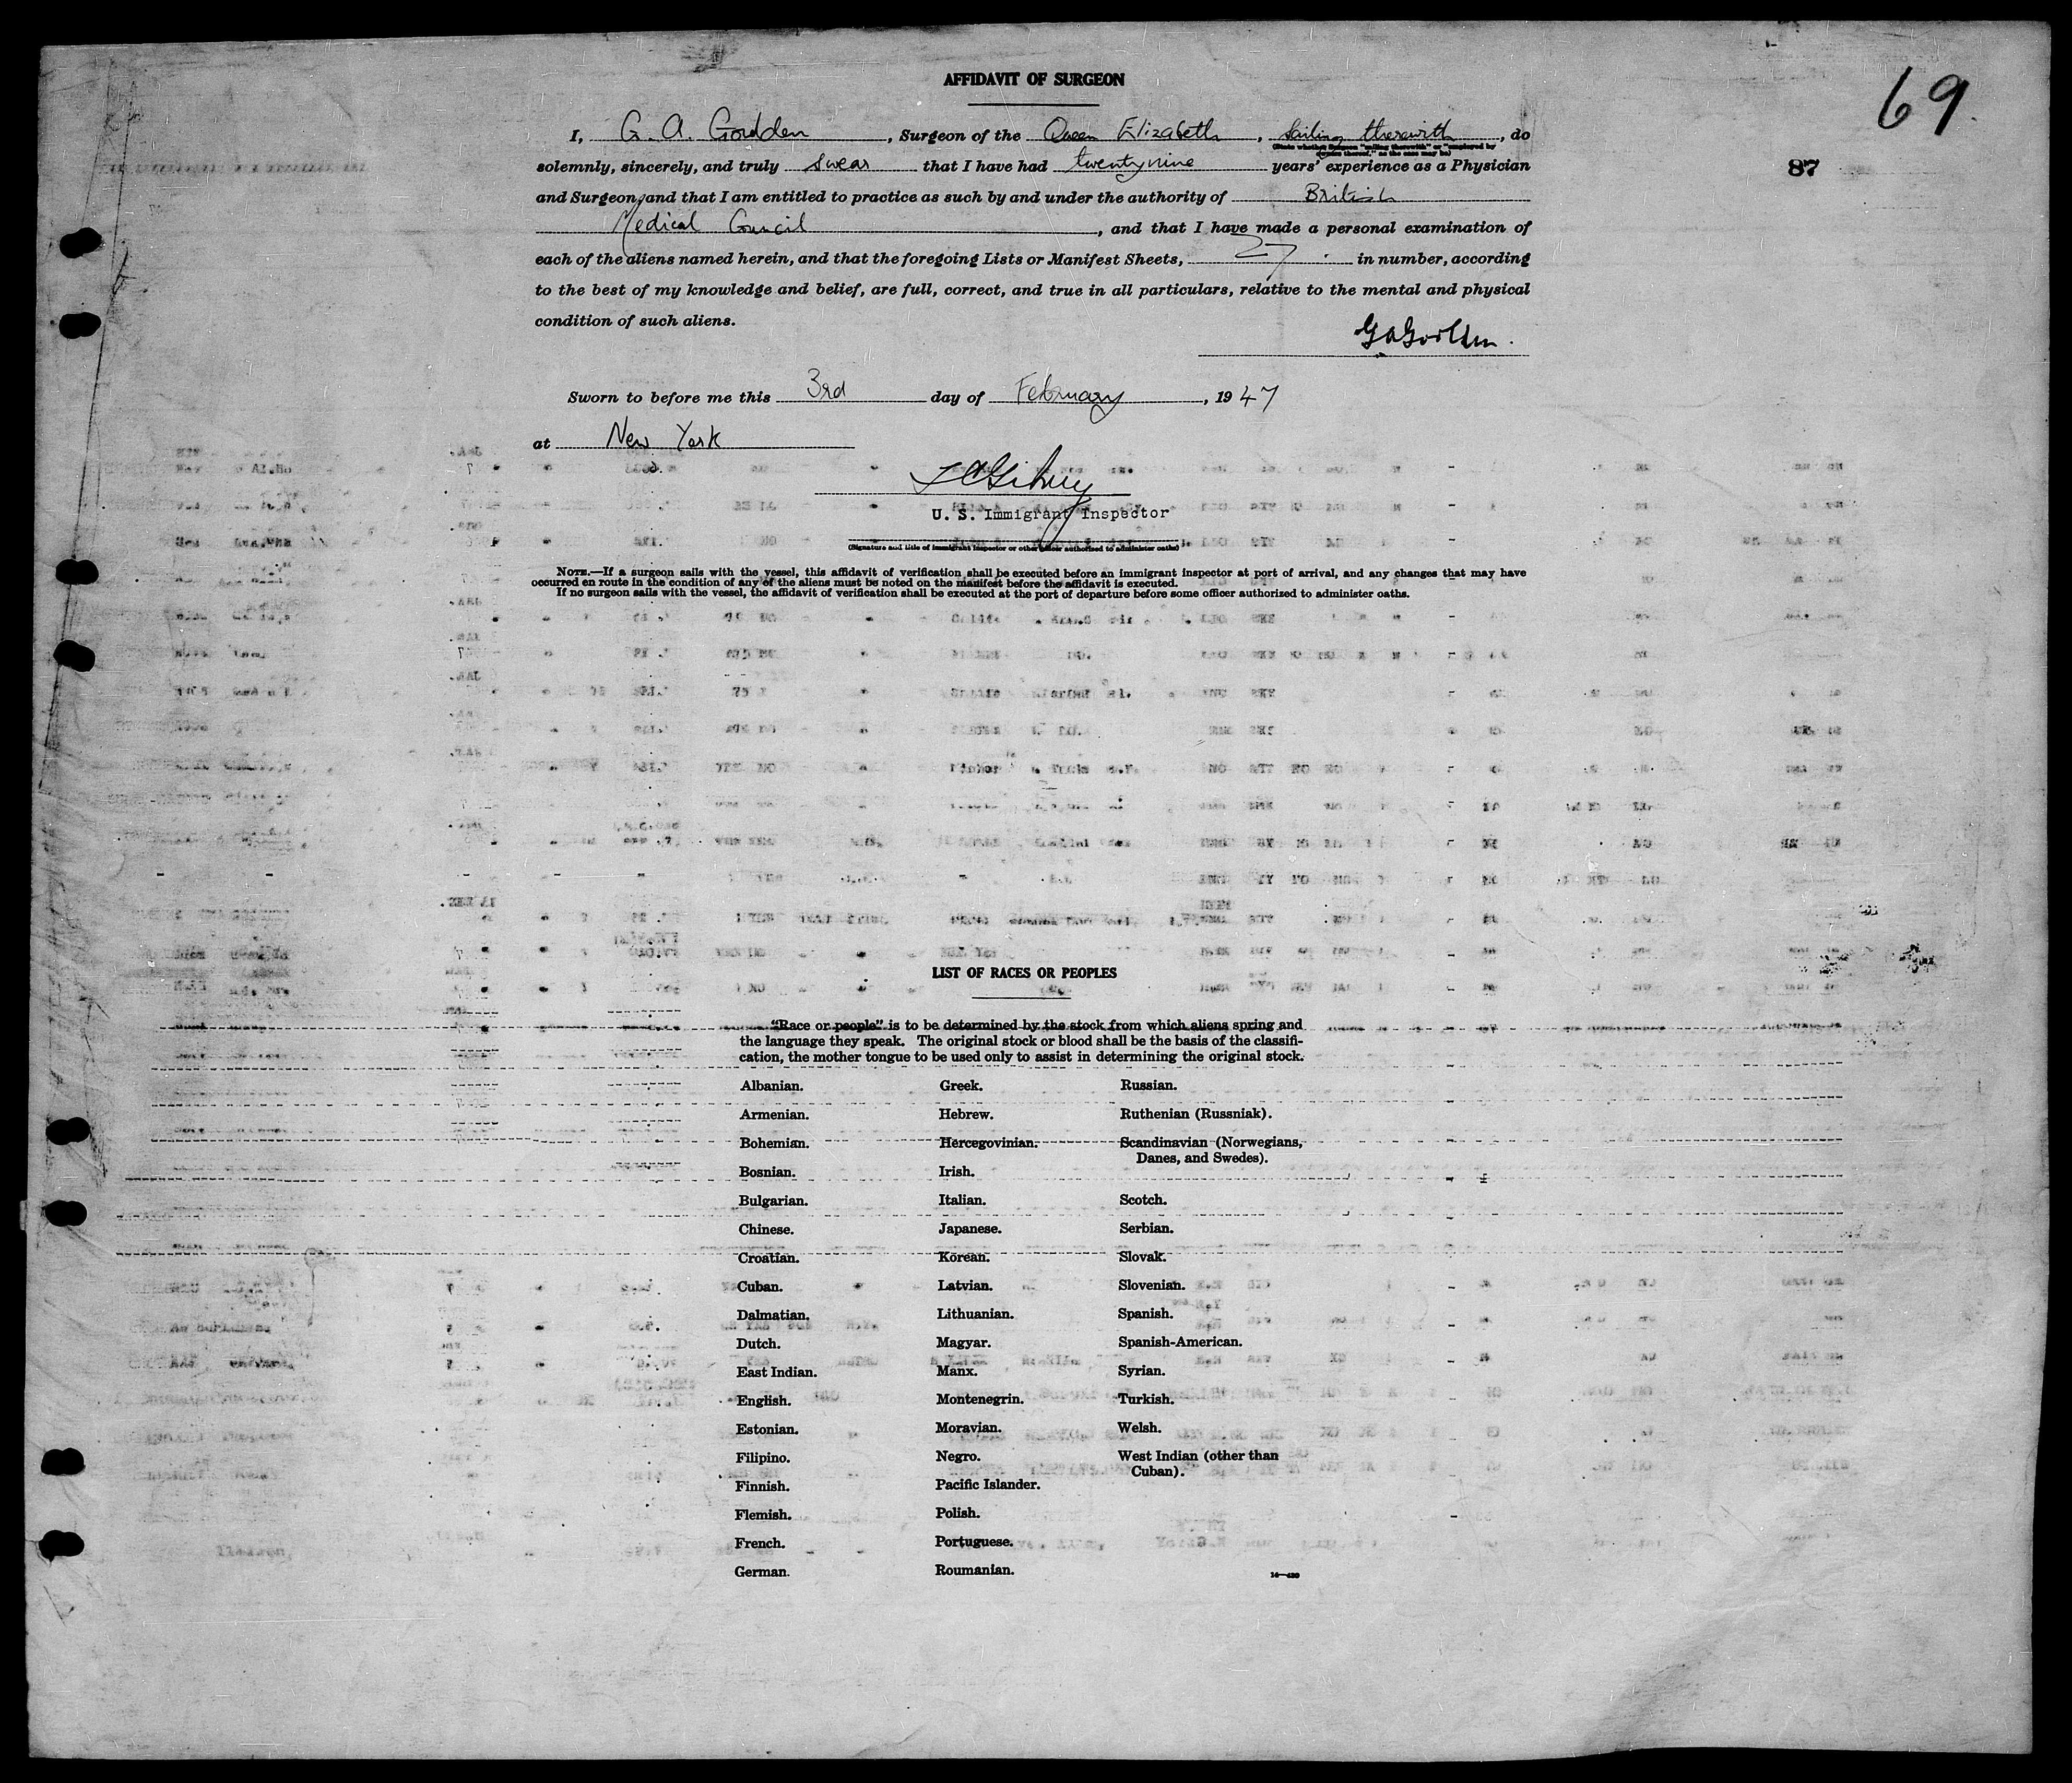 AFFIDAVIT OF SURGEON
69
I, G. A. Goulden, Surgeon of the Queen Elizabeth, Sailing therewith, do
(State whether Surgeon "sailing therewith" or "employed by
owners thereof," as the case may be)
solemnly, sincerely, and truly swear that I have had twentynine years' experience as a Physician
87
and Surgeon, and that I am entitled to practice as such by and under the authority of British
Medical Council, and that I have made a personal examination of
each of the aliens named herein, and that the foregoing Lists or Manifest Sheets, 27 in number, according
to the best of my knowledge and belief, are full, correct, and true in all particulars, relative to the mental and physical
condition of such aliens.
G A Goulden.
Sworn to before me this 3rd day of February, 1947
at New York
U. S. Immigrant Inspector
(Signature and title of immigrant inspector or other officer authorized to administer oaths)
NOTE.—If a surgeon sails with the vessel, this affidavit of verification shall be executed before an immigrant inspector at port of arrival, and any changes that may have
occurred en route in the condition of any of the aliens must be noted on the manifest before the affidavit is executed.
If no surgeon sails with the vessel, the affidavit of verification shall be executed at the port of departure before some officer authorized to administer oaths.
LIST OF RACES OR PEOPLES
"Race or people" is to be determined by the stock from which aliens spring and
the language they speak. The original stock or blood shall be the basis of the classifi-
cation, the mother tongue to be used only to assist in determining the original stock.
Albanian.
Armenian.
Bohemian.
Bosnian.
Bulgarian.
Chinese.
Croatian.
Cuban.
Dalmatian.
Dutch.
East Indian.
English.
Estonian.
Filipino.
Finnish.
Flemish.
French.
German.
Greek.
Hebrew.
Hercegovinian.
Irish.
Italian.
Japanese.
Korean.
Latvian.
Lithuanian.
Magyar.
Manx.
Montenegrin.
Moravian.
Negro.
Pacific Islander.
Polish.
Portuguese.
Roumanian.
Russian.
Ruthenian (Russniak).
Scandinavian (Norwegians,
Danes, and Swedes).
Scotch.
Serbian.
Slovak.
Slovenian.
Spanish.
Spanish-American.
Syrian.
Turkish.
Welsh.
West Indian (other than
Cuban).